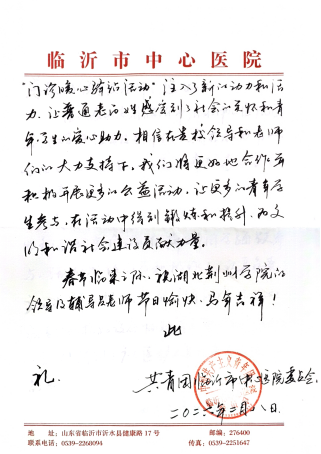 临沂市中心医院
"门诊暖心驿站活动"注入了新的动力和活
力，让普通老百姓感受到了社会的关怀和青
年学生的爱心助力。相信在贵校领导和老师
们的大力支持下，我们将更好地合作，
积极开展更多的公益活动，让更多的青年学
生参与，在活动中得到锻炼和提升，为文
明和谐社会建设贡献力量。
春节临来之际，祝湖北荆州学院的
领导及辅导员老师节日愉快、马年吉祥！
此
礼。
共青团临沂市中心医院委员会
二〇二六年二月八日
地 址：山东省临沂市沂水县健康路17号
邮编：276400
联系电话：0539-2268094
传真：0539-2251647